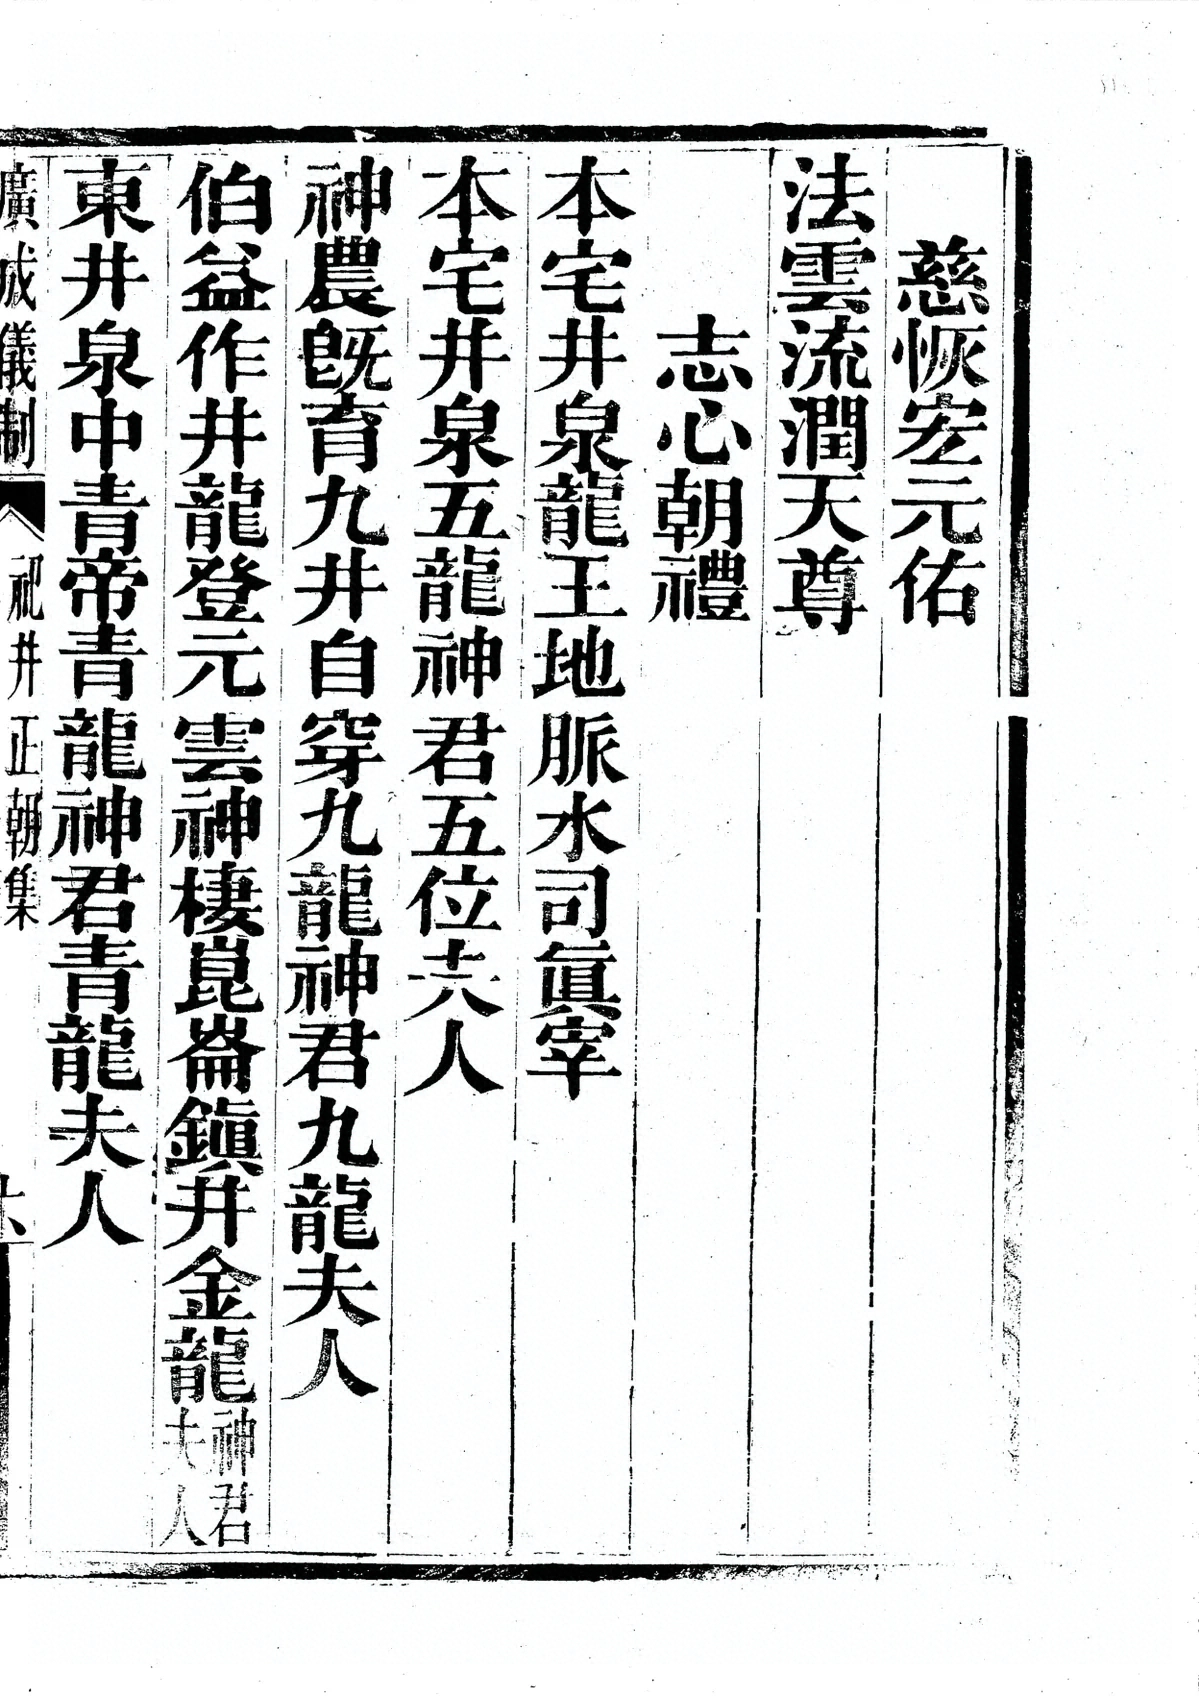 慈恢宏元佑
法雲流潤天尊
志心朝禮
本宅井泉龍王地脈水司眞宰
本宅井泉五龍神君五位夫人
神農旣育九井自穿九龍神君九龍夫人
伯益作井龍登元雲神棲崑崙鎭井金龍神君夫人
東井泉中青帝青龍神君青龍夫人
廣成儀制 祀井正朝集 六